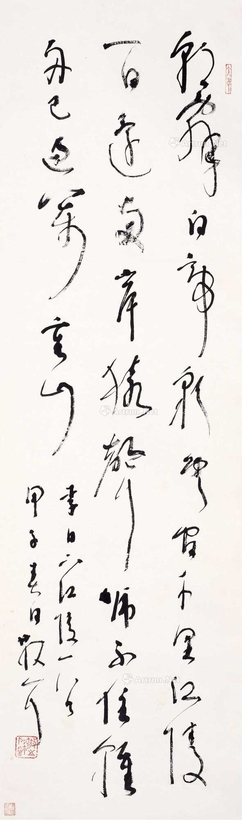 朝辭白帝彩雲間千里江陵
一日還兩岸猿聲啼不住輕
舟已過萬重山
李白下江陵一首
甲子春日散耳